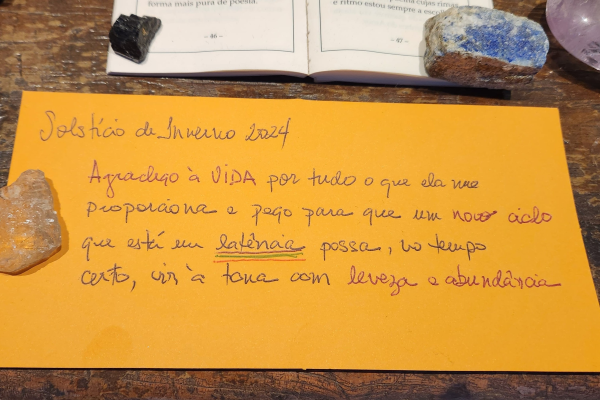 forma mais pura de poesia.
– 86 –
cujas rimas
e ritmo estou sempre a
– 87 –
Solstício de Inverno 2024
Agradeço à VIDA por tudo o que ela me
proporciona e peço para que um novo ciclo
que está em latência possa, no tempo
certo, vir à tona com leveza e abundância